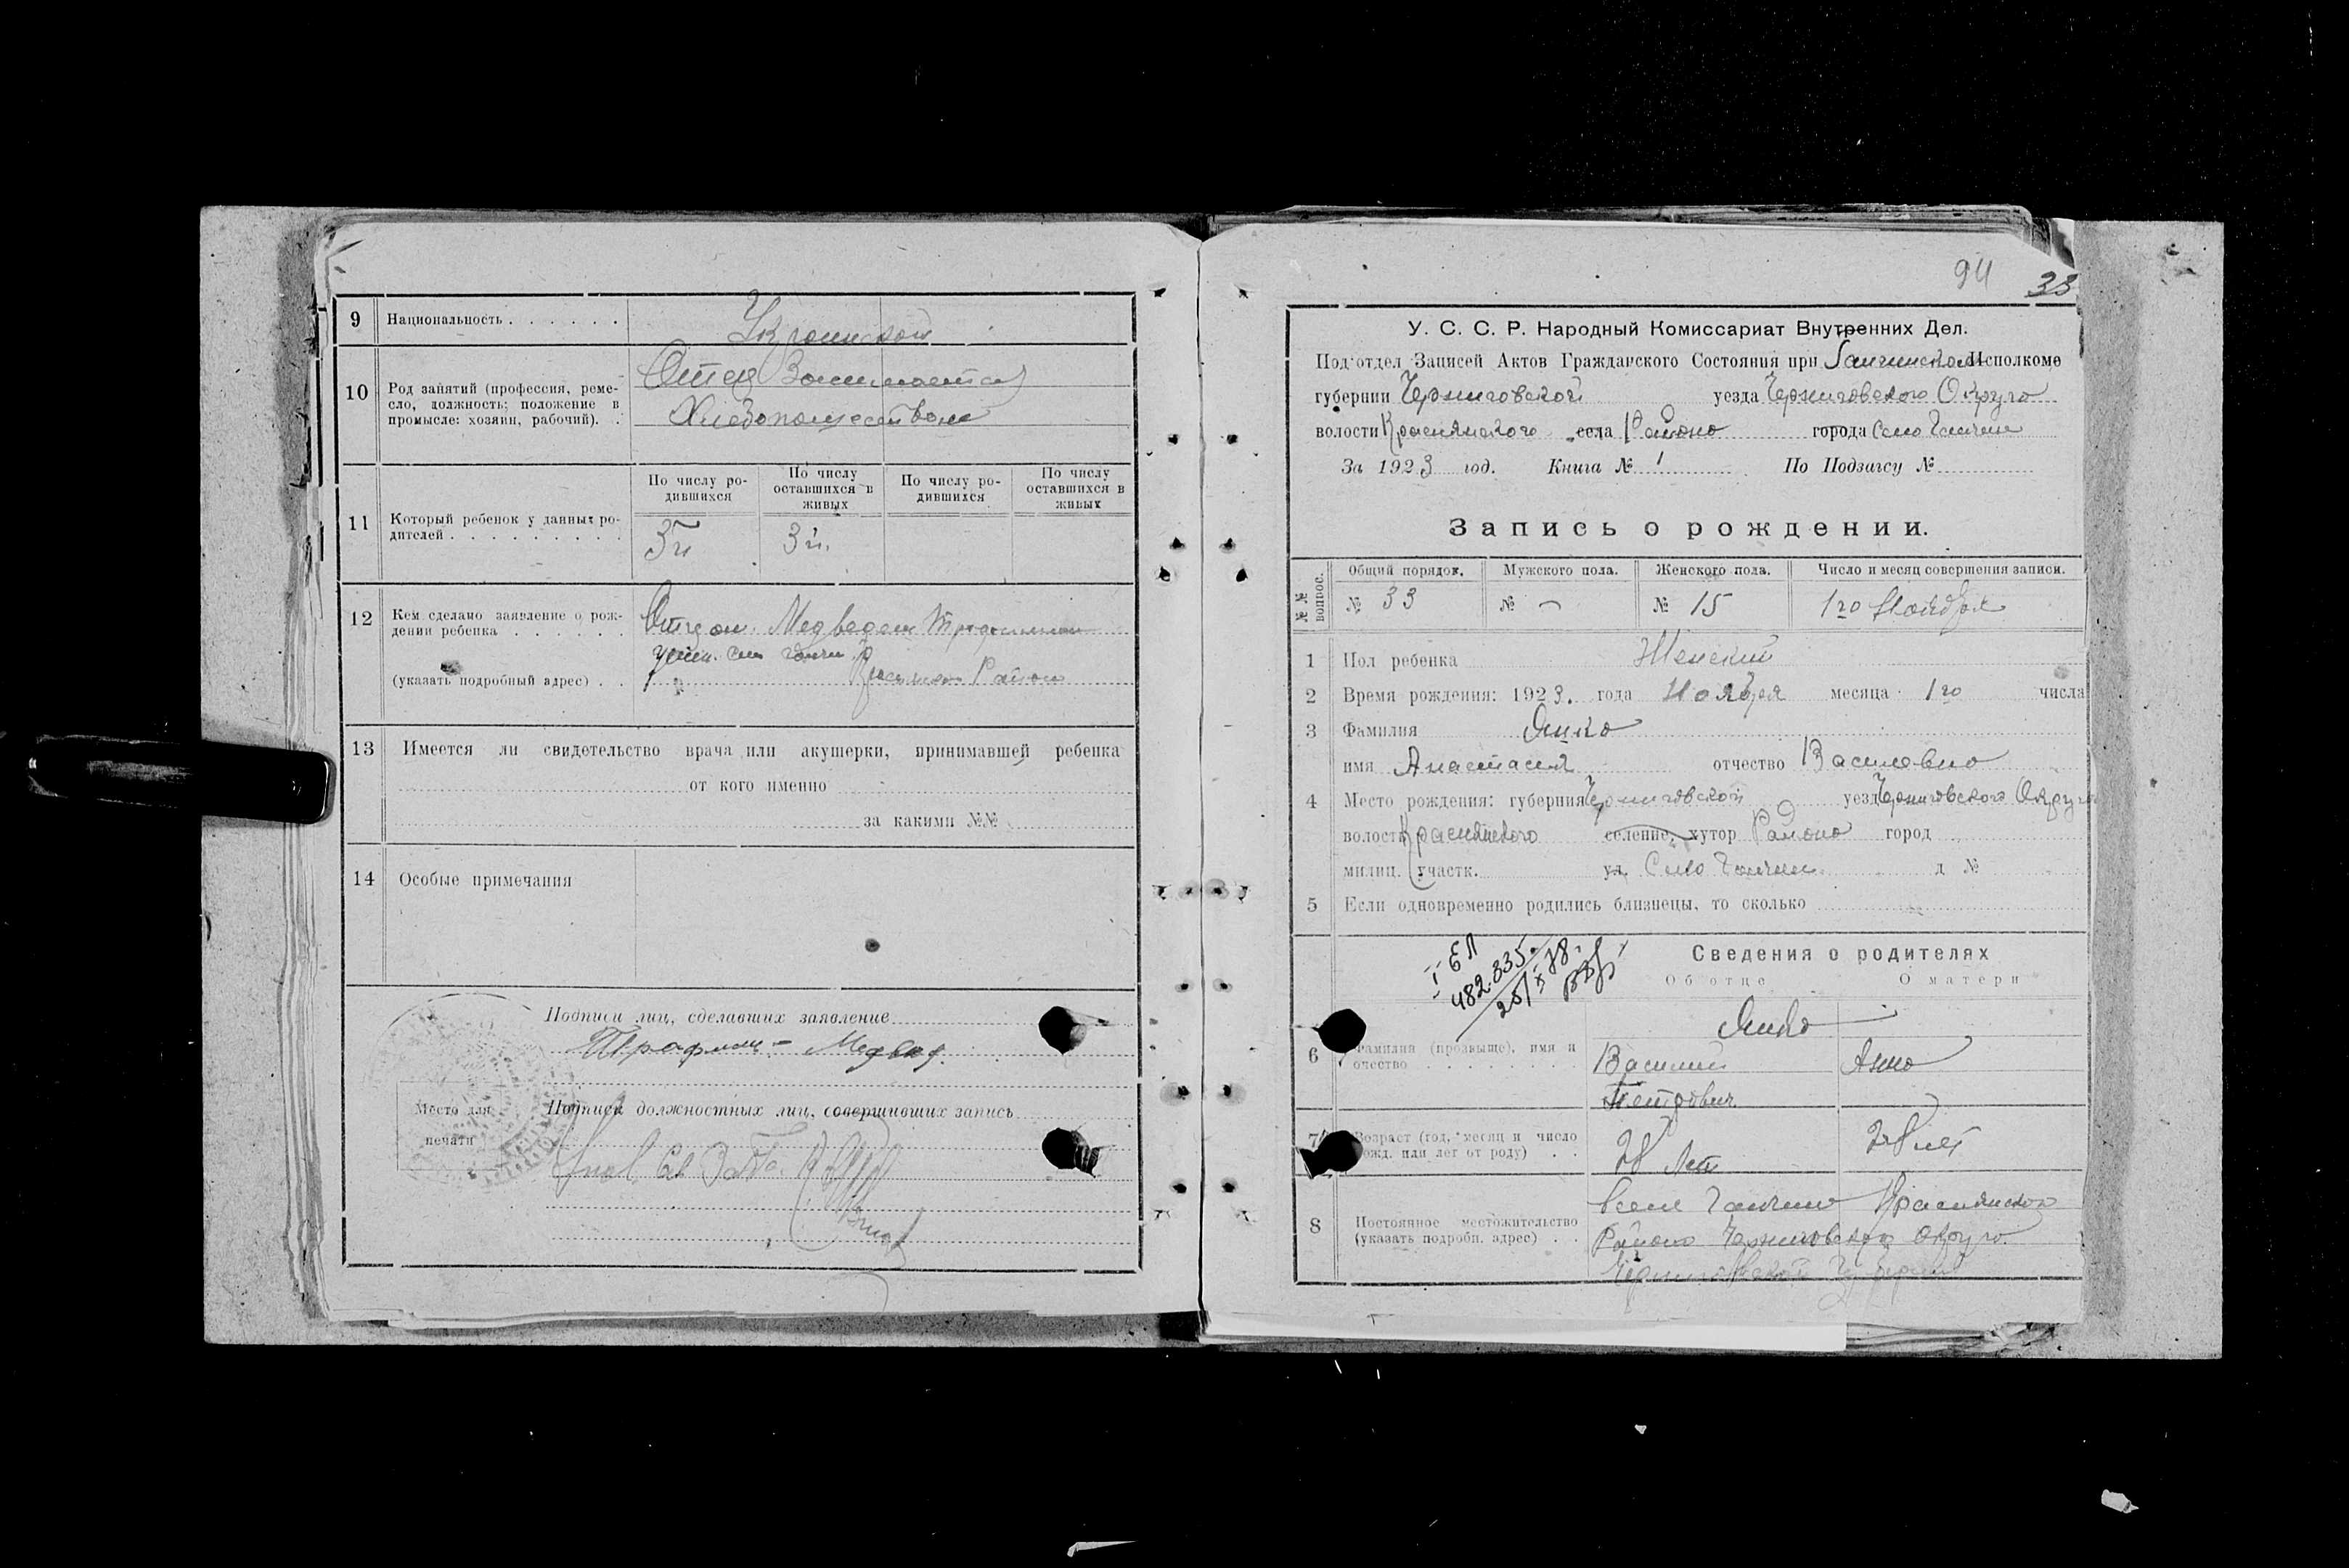 9 Национальность . . . . . .
Украинской
10 Род занятий (профессия, реме-
сло, должность; положение в
промысле: хозяин, рабочий). .
Отец Занимается
Хлебопашеством
11 Который ребенок у данных ро-
дителей . . . . . . . . .
По числу ро-
дившихся
По числу
оставшихся в
живых
По числу ро-
дившихся
По числу
оставшихся в
живых
3й 3й.
12 Кем сделано заявление о рож-
дении ребенка . . . . . .
(указать подробный адрес) . .
Отцом Медведем
Район
13 Имеется ли свидетельство врача или акушерки, принимавшей ребенка
от кого именно
за какими №№
14 Особые примечания
Подписи лиц, сделавших заявление
Трафим - Медвед.
Место для
печати
Подписи должностных лиц, совершивших запись
94 33
У. С. С. Р. Народный Комиссариат Внутренних Дел.
Под'отдел Записей Актов Гражданского Состояния при Исполкоме
губернии Черниговской уезда Черниговского Округо
волости Краснянского села Районо города Село
За 1923 год. Книга № 1 По Подзагсу №
Запись о рождении.
№№ вопрос.
Общий порядок. Мужского пола. Женского пола. Число и месяц совершения записи.
№ 33 № — № 15 1го Ноября
1 Пол ребенка Женский
2 Время рождения: 1923. года Ноября месяца 1го числа
3 Фамилия Янко
имя Анастасия отчество Василовно
4 Место рождения: губерния Черниговской уезд Черниговского Округо
волость Краснянского селение, хутор Районо город
милиц. участк. ул. Село д №
5 Если одновременно родились близнецы, то сколько
482.335.
Сведения о родителях
Об отце О матери
Янко
6 Фамилия (прозвыще), имя и
отчество . . . . . . . .
Василий Анно
Петрович
7 Возраст (год, месяц и число
рожд. или лет от роду) . .
28 Лет 28 лет
8 Постоянное местожительство
(указать подробн. адрес) . .
Районо Округо
Черниговской Губернии